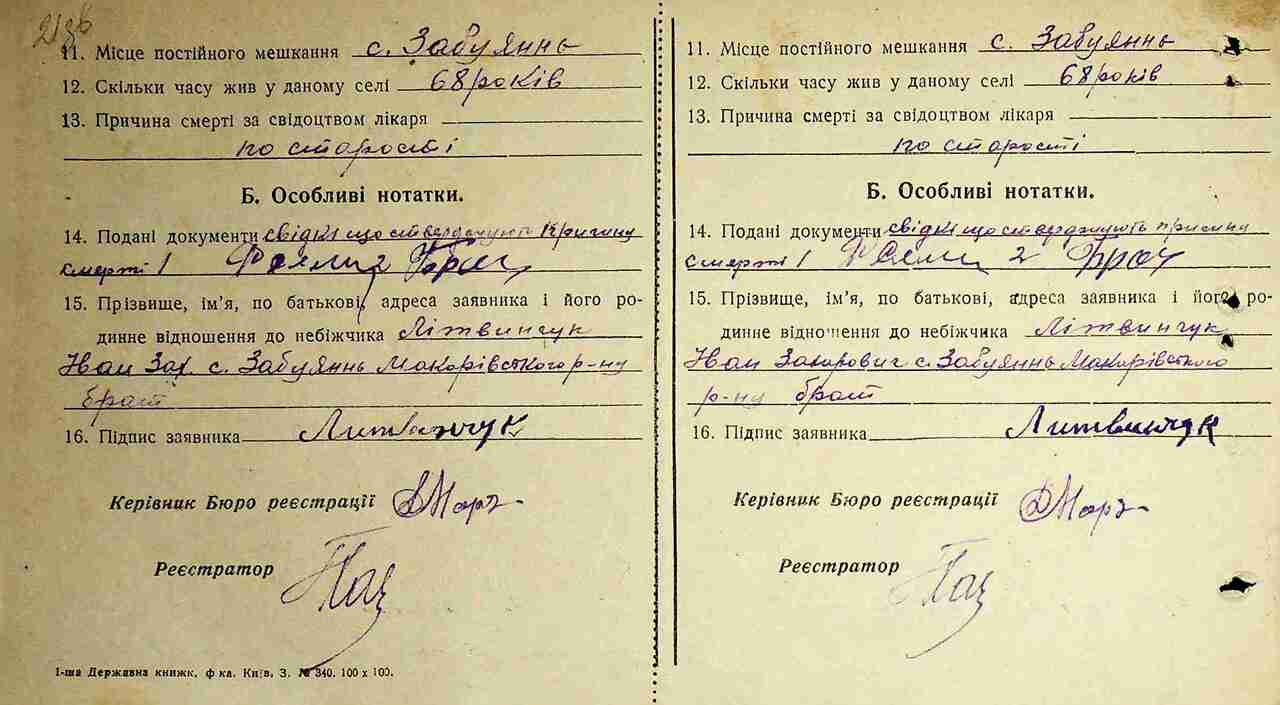 11. Місце постійного мешкання с. Забуяннь
12. Скільки часу жив у даному селі 68 років
13. Причина смерті за свідоцтвом лікаря
по старості
Б. Особливі нотатки.
14. Подані документи свідкі що стверджують причину
смерті 1 2
15. Прізвище, ім'я, по батькові, адреса заявника і його ро-
динне відношення до небіжчика Літвинчук
Іван Зах. с. Забуяннь Макарівсткого р-ну
брат
16. Підпис заявника Литвинчук
Керівник Бюро реєстрації
Реєстратор
1-ша Державна книжк. ф-ка. Київ. З. № 340. 100 х 100.
11. Місце постійного мешкання с. Забуяннь
12. Скільки часу жив у даному селі 68 років
13. Причина смерті за свідоцтвом лікаря
по старості
Б. Особливі нотатки.
14. Подані документи свідкі що стверджують причину
смерті 1 2
15. Прізвище, ім'я, по батькові, адреса заявника і його ро-
динне відношення до небіжчика Літвинчук
Іван Захарович с. Забуяннь Макарівсткого
р-ну брат
16. Підпис заявника Литвинчук
Керівник Бюро реєстрації
Реєстратор